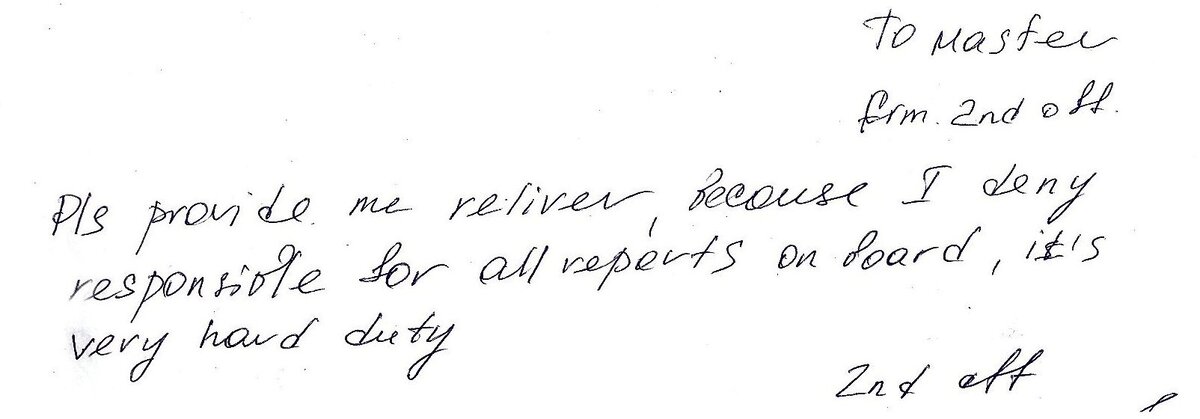 To Master
frm. 2nd off.
Pls provide me reliver, because I deny
responsible for all reports on board, it's
very hard duty
2nd off